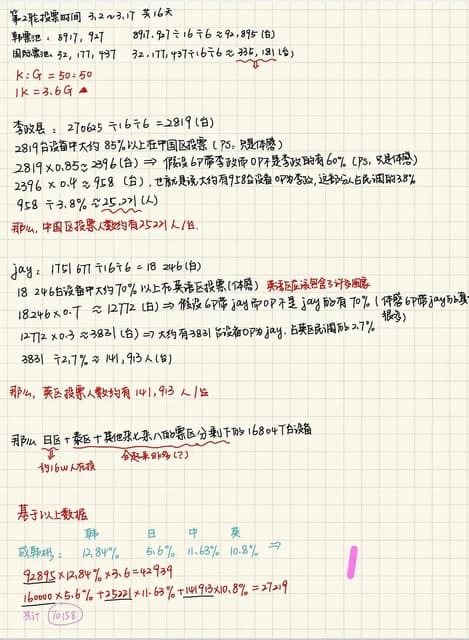 第2轮投票时间 3.2~3.17 共16天
韩票池: 8917,927 8917,927÷16÷6≈92,895(台)
国际票池: 32,177,437 32,177,437÷16÷6≈335,181(台)
K:G=50:50
1K=3.6G
李政县: 270625÷16÷6=2819(台)
2819台设备中大约85%以上在中国区投票 (PS:只是体感)
2819×0.85≈2396(台) ⇒ 假设6P带李政带OP不是李政的有60% (PS,只体感)
2396×0.4≈958 (台), 也就是说大约有958台设备OP为李政,这部分人占民调的3.8%
958÷3.8%≈25,221(人)
那么,中国区投票人数约有25221人/台.
jay: 1751677÷16÷6=18246(台)
18246台设备中大约70%以上在英语区投票(体感) 英语区应该包含了许多国家
18246×0.7 ≈12772(台) ⇒ 假设6P带jay带OP不是jay的有70% (体感6P带jay的真
很多)
12772×0.3≈3831(台) ⇒ 大约有3831台设备OP为jay.占英区民调的2.7%
3831÷2.7%≈141,913人(台)
那么,英区投票人数约有141,913人/台
那么日区+泰区+其他杂七杂八的票区分剩下的168047台设备
约16w人在投 合起来8k多(?)
基于以上数据
韩 日 中 英
成韩彬: 12.84% 5.6% 11.63% 10.8% ⇒
92895×12.84%×3.6=42939
160000×5.6%+25221×11.63%+141913×10.8%=27219
共计 70158